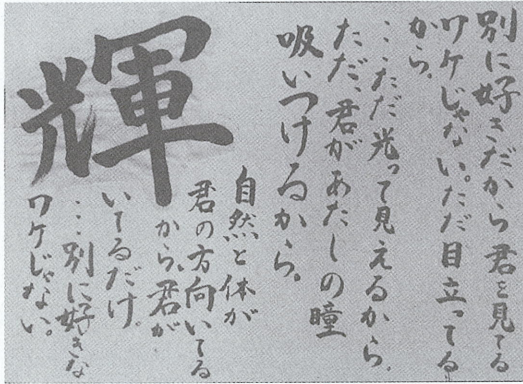 別に好きだから君を見てる
ワケじゃない。ただ目立ってる
から。
…ただ光って見えるから。
ただ、君があたしの瞳
吸いつけるから。
自然と体が
君の方向いてる
から、君が
輝
いてるだけ。
…別に好きな
ワケじゃない。